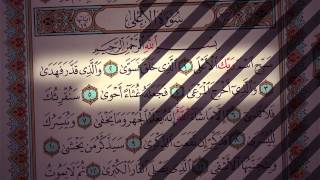 سُورَةُ الْأَعْلَى
بِسْمِ اللَّهِ الرَّحْمَنِ الرَّحِيمِ
سَبِّحِ اسْمَ رَبِّكَ الْأَعْلَى ١ الَّذِي خَلَقَ فَسَوَّى ٢ وَالَّذِي قَدَّرَ فَهَدَى
٣ وَالَّذِي أَخْرَجَ الْمَرْعَى ٤ فَجَعَلَهُ غُثَاءً أَحْوَى ٥ سَنُقْرِئُكَ
فَلَا تَنْسَى ٦ إِلَّا مَا شَاءَ اللَّهُ إِنَّهُ يَعْلَمُ الْجَهْرَ وَمَا يَخْفَى ٧ وَنُيَسِّرُكَ
لِلْيُسْرَى ٨ فَذَكِّرْ إِنْ نَفَعَتِ الذِّكْرَى ٩ سَيَذَّكَّرُ مَنْ يَخْشَى ١٠
وَيَتَجَنَّبُهَا الْأَشْقَى ١١ الَّذِي يَصْلَى النَّارَ الْكُبْرَى ١٢ ثُمَّ لَا يَمُوتُ